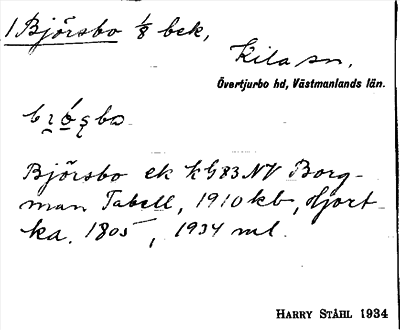 1 Björsbo 1/8 bek,
Kila sn.
Övertjurbo hd, Västmanlands län.
Björsbo ek kG83NV Borg-
man Tabell, 1910 kb, Hjort-
ka. 1805, 1934 ml.
HARRY STÅHL 1934